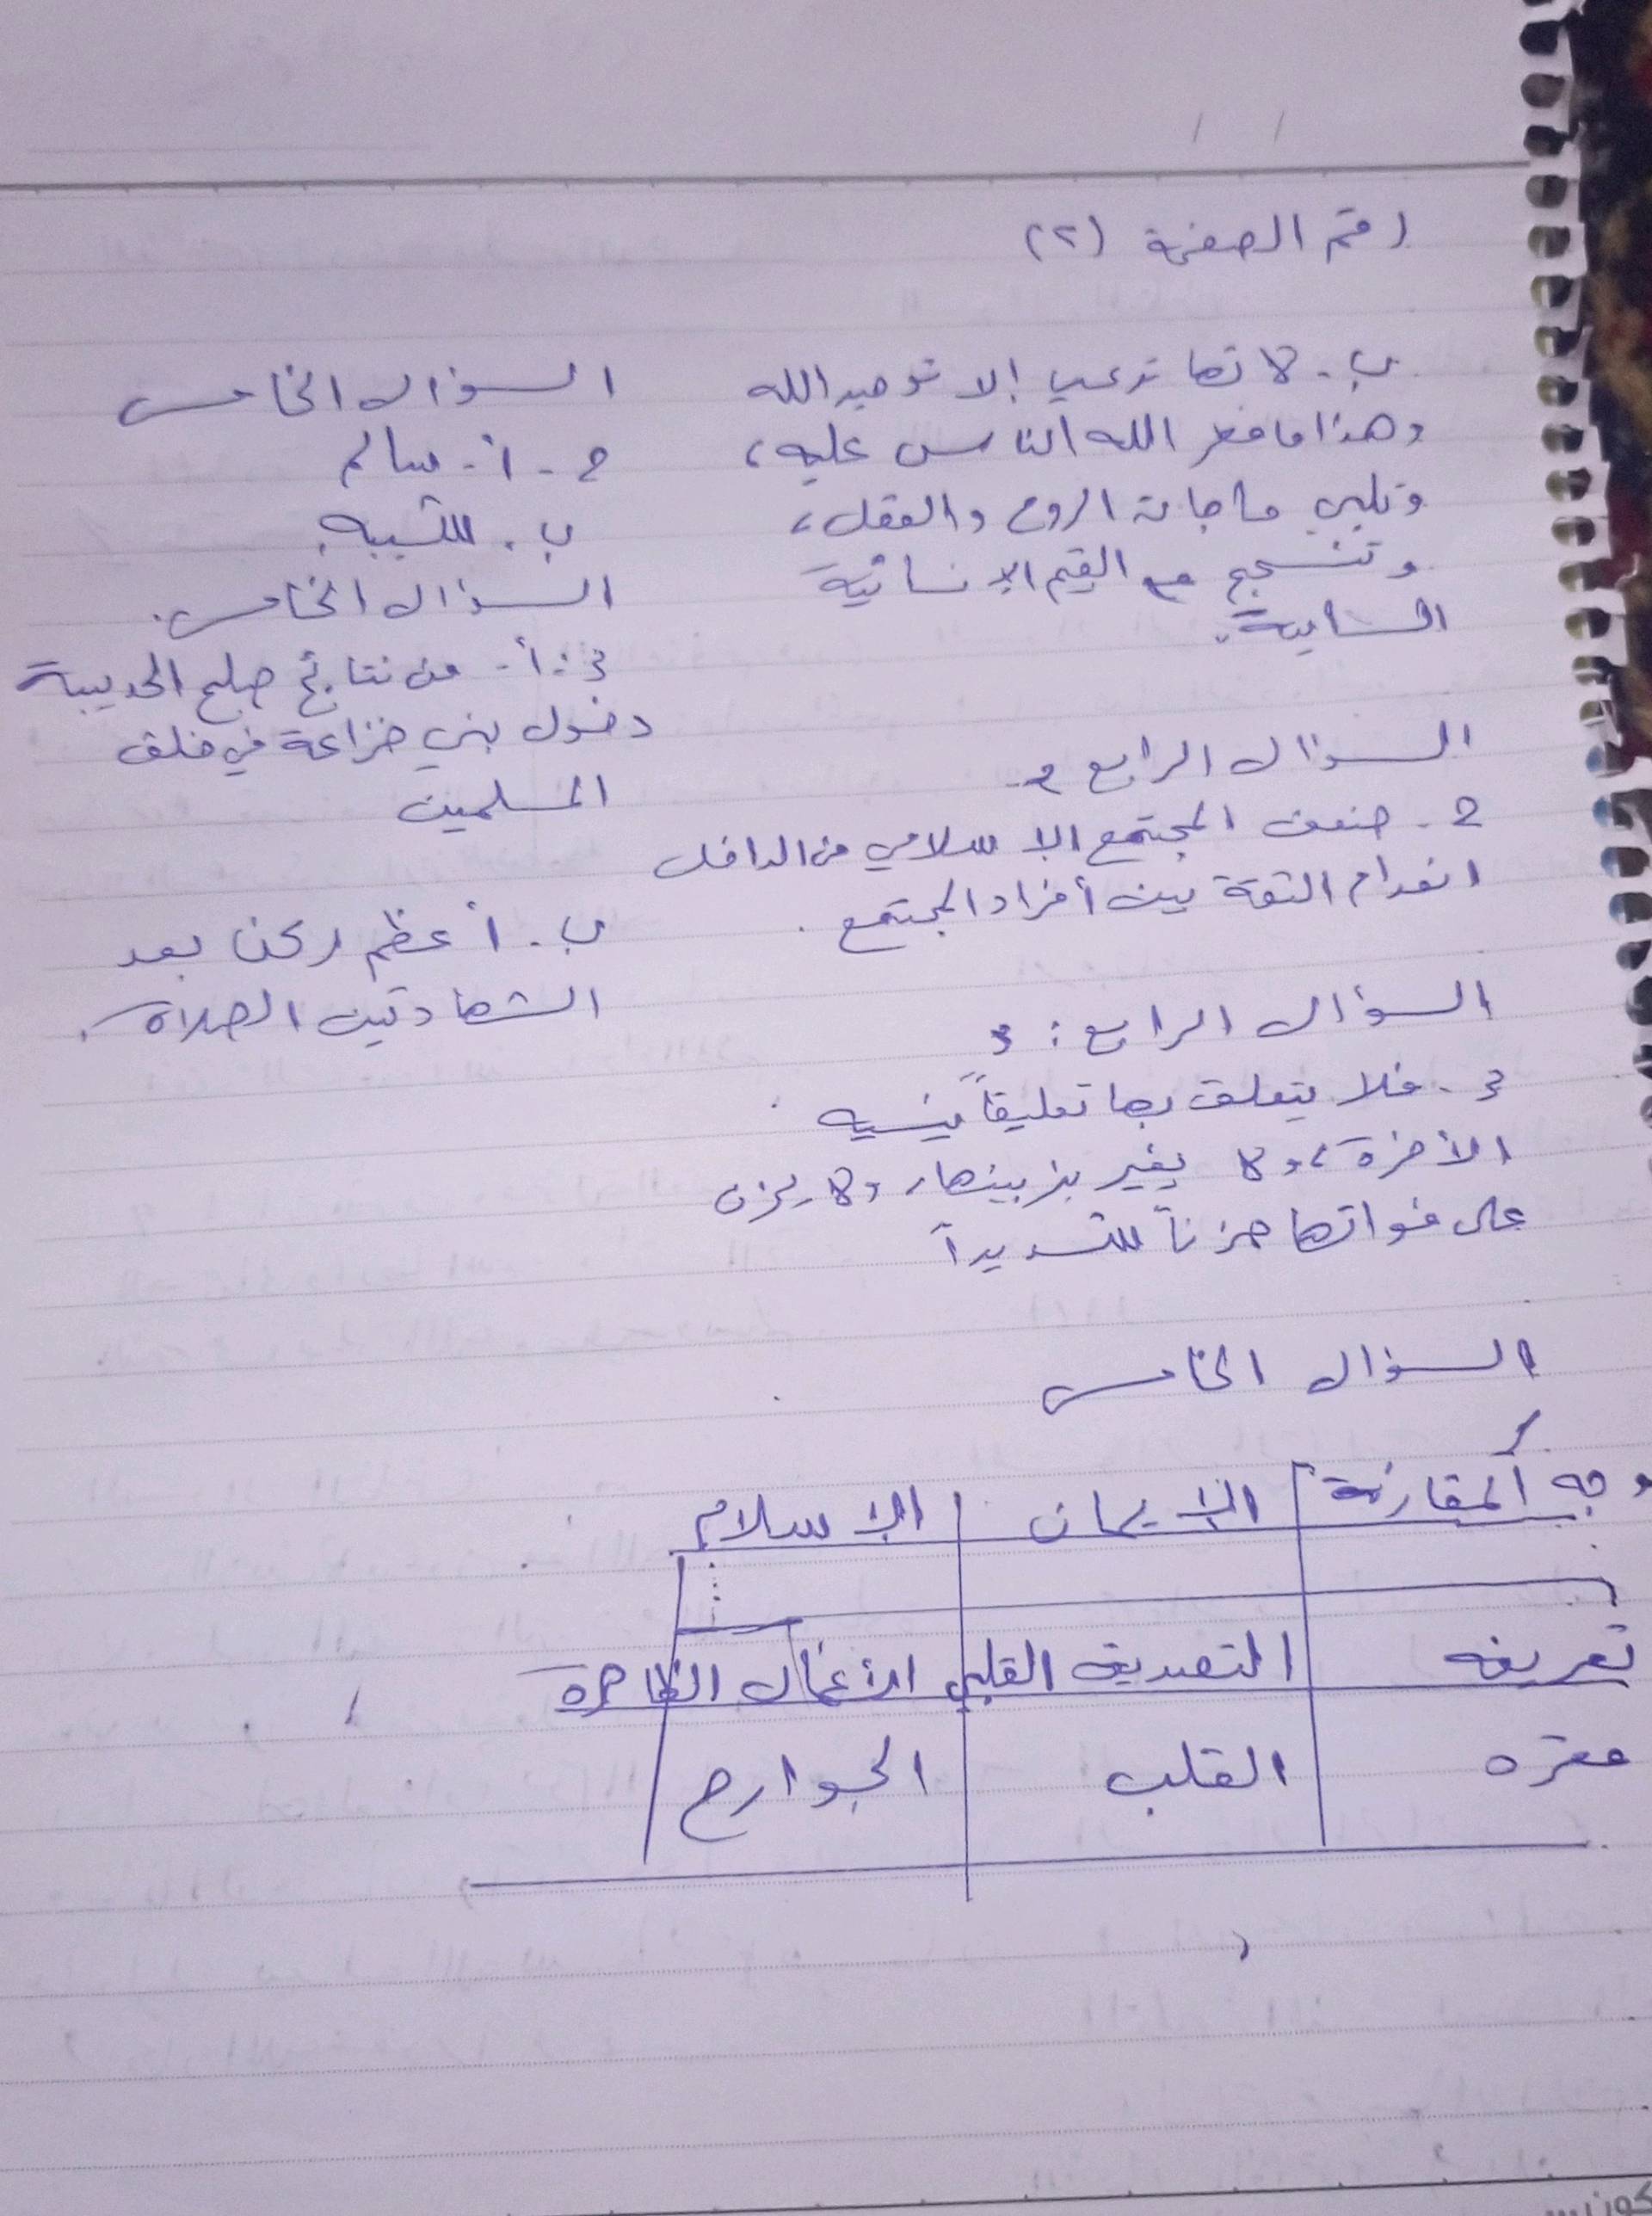 رقم الصفحة (٢)
ب. لانها تدعى إلا توحيد الله
وهذا ما فطر الله الناس عليه،
وتلبي حاجات الروح والعقل،
وتنسجم مع القيم الإنسانية
السامية.
السؤال الرابع 2.
2. ضعف المجتمع الإسلامي من الداخل
انعدام الثقة بين أفراد المجتمع.
السؤال الرابع: 3
3. فلا يتعلق بها تعليقاً ينسيه
الأخرة، ولا يغير بزينها، ولا يحزن
على فواتها حزناً شديداً
السؤال الخامس
1.
وجه المقارنة | الإيمان | الإسلام
تعريفه | التصديق القلبي | الأعمال الظاهرة
مقره | القلب | الجوارح
السؤال الخامس
2 - أ - سالم
ب. للتشبيه.
السؤال الخامس.
3: أ - من نتائج صلح الحديبية
دخول بني خزاعة في حلف
المسلمين
ب. أعظم ركن بعد
الشهادتين الصلاة.